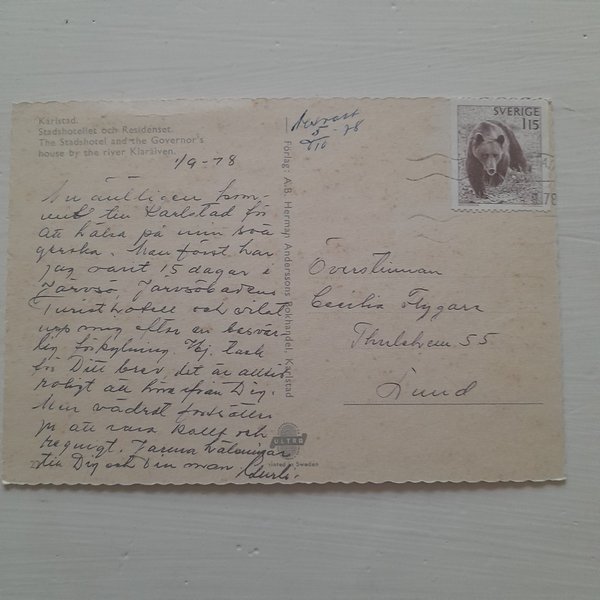 Karlstad.
Stadshotellet och Residenset.
The Stadshotel and the Governor's
house by the river Klarälven.
1/9-78
Nu äntligen kom-
mit till Karlstad för
att hälsa på min svä
gerska. Men först har
jag varit 15 dagar i
Järvsö, Järvsöbadens
Turisthotell och vilat
upp mig efter en besvär
lig förkylning. Hej tack
för Ditt brev, det är alltid
roligt att höra från Dig.
Men vädret fortsätter
ju att vara kallt och
regnigt. Varma hälsningar
till Dig och Din man
Förlag: A.B. Herman Anderssons Bokhandel, Karlstad
5/10 -78
SVERIGE
115
Överstinnan
Cecilia Flygare
Thulehem 55
Lund
ULTRA
Printed in Sweden